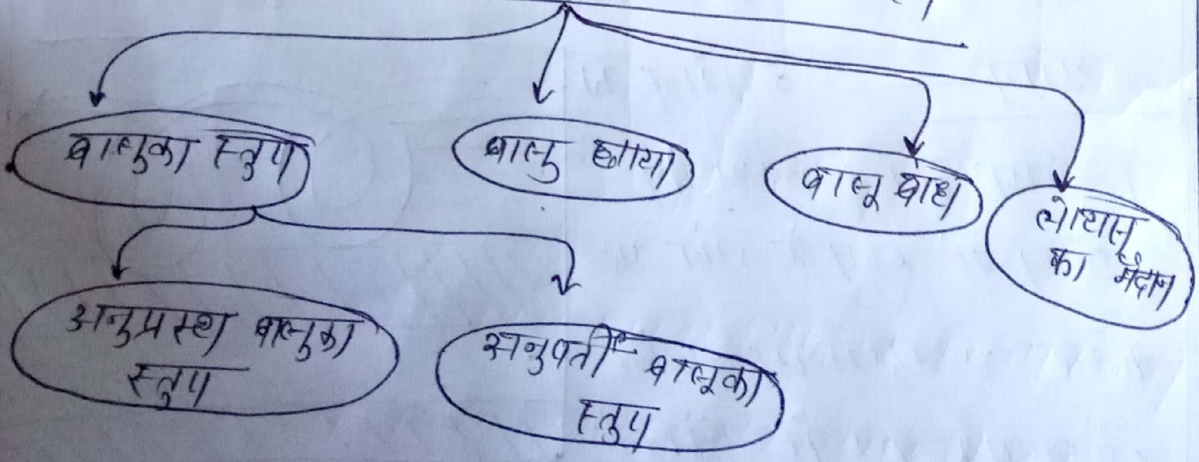 बालुका स्तुप
बालु छाया
बालू बाँध
लोयास्
का मैदान
अनुप्रस्थ बालुका
स्तुप
अनुवर्ती बालूका
स्तुप